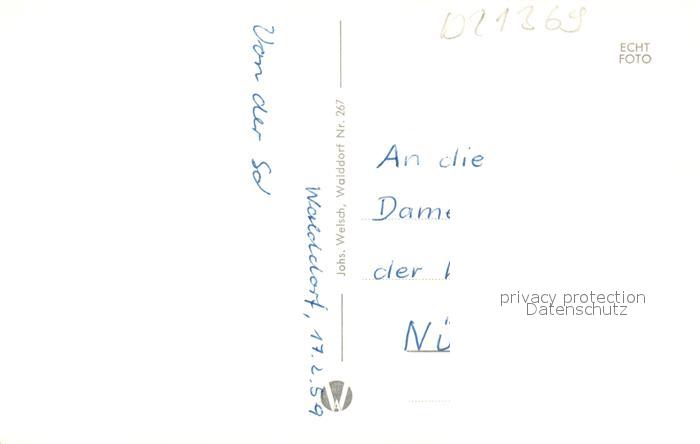 D21369
ECHT
FOTO
Von der Sd
Walddorf, 17.2.59
Johs. Welsch, Walddorf Nr. 267
An die
Dame
der
Nü
privacy protection
Datenschutz
W